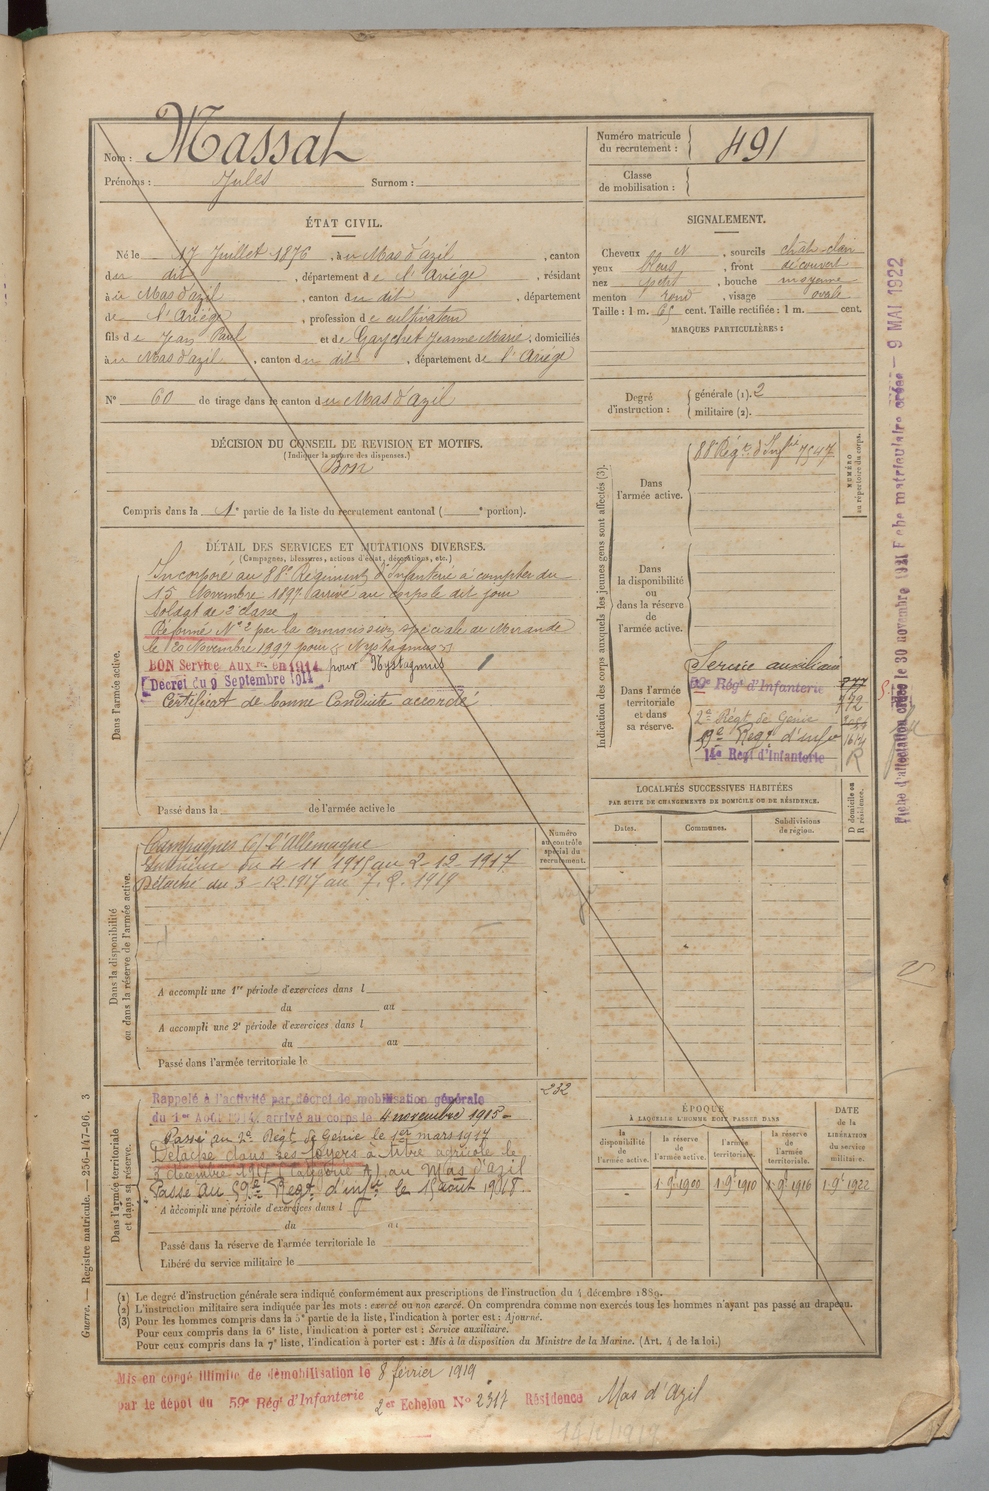 Nom : Massat
Prénoms : Jules Surnom :
Numéro matricule du recrutement : 491
Classe de mobilisation :
ÉTAT CIVIL.
Né le 17 Juillet 1876, au Mas d'azil, canton
du dit, département de l'Ariège, résidant
à u Mas d'azil, canton du dit, département
de l'Ariège, profession de cultivateur
fils de Jean Paul et de Gaychet Jeanne Marie, domiciliés
à u Mas d'azil, canton du dit, département de l'Ariège
N° 60 de tirage dans le canton du Mas d'azil
SIGNALEMENT.
Cheveux N, sourcils chât. clair
yeux bleus, front découvert
nez petit, bouche moyenne
menton rond, visage ovale
Taille : 1 m. 65 cent. Taille rectifiée : 1 m. cent.
MARQUES PARTICULIÈRES :
Degré d'instruction : générale (1). 2
militaire (2).
DÉCISION DU CONSEIL DE REVISION ET MOTIFS.
(Indiquer la nature des dispenses.)
Bon
Compris dans la 1e partie de la liste du recrutement cantonal ( e portion).
DÉTAIL DES SERVICES ET MUTATIONS DIVERSES.
(Campagnes, blessures, actions d'éclat, décorations, etc.)
Dans l'armée active.
Incorporé au 88e Régiment d'Infanterie à compter du
15 Novembre 1897 arrivé au corps le dit jour
Soldat de 2e classe
Réformé N° 2 par la commission spéciale de Mirande
le 20 Novembre 1897 pour "Nystagmus"
BON Service Auxre en 1914 pour Nystagmus
Décret du 9 Septembre 1914
Certificat de bonne Conduite accordé
Passé dans la de l'armée active le
Indication des corps auxquels les jeunes gens sont affectés (3).
NUMÉRO au répertoire du corps.
Dans l'armée active. 88e Régt d'Infrie 7547
Dans la disponibilité ou dans la réserve de l'armée active.
Dans l'armée territoriale et dans sa réserve.
Service auxiliaire
59e Régt d'Infanterie 877
772
2e Régt de Génie
59e Regt d'infie 1614
14e Régt d'Infanterie R
LOCALITÉS SUCCESSIVES HABITÉES
PAR SUITE DE CHANGEMENTS DE DOMICILE OU DE RÉSIDENCE.
Dates. Communes. Subdivisions de région. D domicile ou R résidence.
Numéro au contrôle spécial du recrutement.
232
Dans la disponibilité ou dans la réserve de l'armée active.
Campagnes C/ L'Allemagne
Intérieur du 4-11 1915 au 2-12-1917
Détaché du 3-12.1917 au 7.2.1919
A accompli une 1re période d'exercices dans l
du au
A accompli une 2e période d'exercices dans l
du au
Passé dans l'armée territoriale le
Dans l'armée territoriale et dans sa réserve.
Rappelé à l'activité par décret de mobilisation générale
du 1er Août 1914, arrivé au corps le 4 novembre 1915
Passé au 2e Régt de Génie le 1er mars 1917
Détaché dans ses foyers à titre agricole le
3 décembre 1917 (Catégorie A) au Mas d'azil
Passé au 59e Regt d'infie le 15 août 1918.
A accompli une période d'exercices dans l
du au
Passé dans la réserve de l'armée territoriale le
Libéré du service militaire le
ÉPOQUE
À LAQUELLE L'HOMME DOIT PASSER DANS
la disponibilité de l'armée active. la réserve de l'armée active. l'armée territoriale. la réserve de l'armée territoriale.
DATE de la LIBÉRATION du service militaire.
1-9e 1900 1-9e 1910 1-9e 1916 1-9e 1922
(1) Le degré d'instruction générale sera indiqué conformément aux prescriptions de l'instruction du 4 décembre 1889.
(2) L'instruction militaire sera indiquée par les mots : exercé ou non exercé. On comprendra comme non exercés tous les hommes n'ayant pas passé au drapeau.
(3) Pour les hommes compris dans la 5e partie de la liste, l'indication à porter est : Ajourné.
Pour ceux compris dans la 6e liste, l'indication à porter est : Service auxiliaire.
Pour ceux compris dans la 7e liste, l'indication à porter est : Mis à la disposition du Ministre de la Marine. (Art. 4 de la loi.)
Mis en congé illimité de démobilisation le 8 février 1919
par le dépôt du 59e Régt d'Infanterie 2er Echelon N° 2317 Résidence Mas d'Azil
Guerre. — Registre matricule. — 256-147-96. 3
Fiche d'affectation créée le 30 novembre 1921 Fiche matriculaire créée — 9 MAI 1922